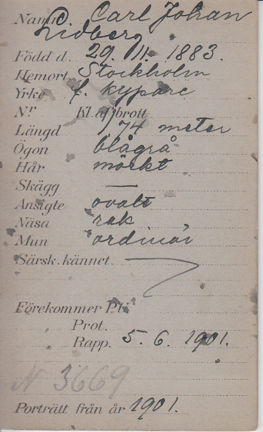 Namn. Carl Johan
Lidberg
Född d. 29. 11. 1883.
Hemort Stockholm
Yrke f. kypare
Nr Kl. af brott
Längd 1,74 meter
Ögon blågrå
Hår mörkt
Skägg —
Ansigte ovalt
Näsa rak
Mun ordinär
Särsk. kännet.
Förekommer P. U:
Prot.
Rapp. 5. 6. 1901.
N 3669
Porträtt från år 1901.